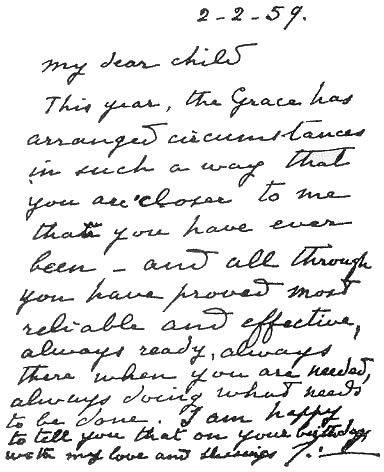 2-2-59.
My dear child
This year, the Grace has
arranged circumstances
in such a way that
you are closer to me
than you have ever
been - and all through
you have proved most
reliable and effective,
always ready, always
there when you are needed,
always doing what needs
to be done. I am happy
to tell you that on your birthday
with my love and blessings